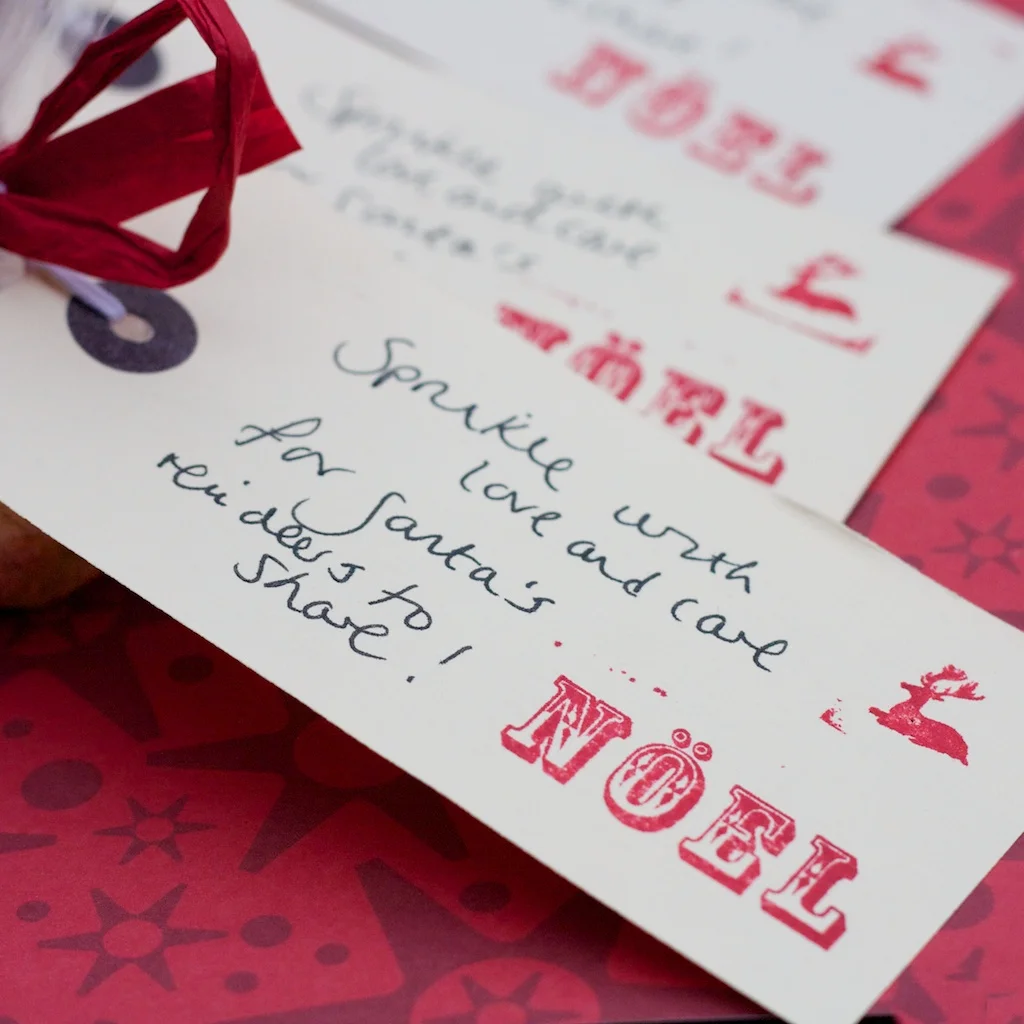 NÖEL
Sprinkle with
love and care
Santa's
NÖEL
Sprinkle with
love and care
for Santa's
reindeers to
share!
NÖEL